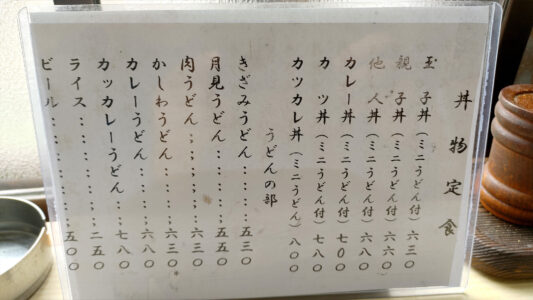 丼物定食
玉子丼（ミニうどん付）六三〇
親子丼（ミニうどん付）六六〇
他人丼（ミニうどん付）六八〇
カレー丼（ミニうどん付）七〇〇
カツ丼（ミニうどん付）七八〇
カツカレ丼（ミニうどん）八〇〇
うどんの部
きざみうどん・・・：：五三〇
月見うどん・・：：：五五〇
肉うどん：：：：：：六三〇
かしわうどん：：：：六三〇
カレーうどん：：：：六八〇
カツカレーうどん：：：七八〇
ライス・・・・・：：：二五〇
ビール・・・・・・・・五〇〇